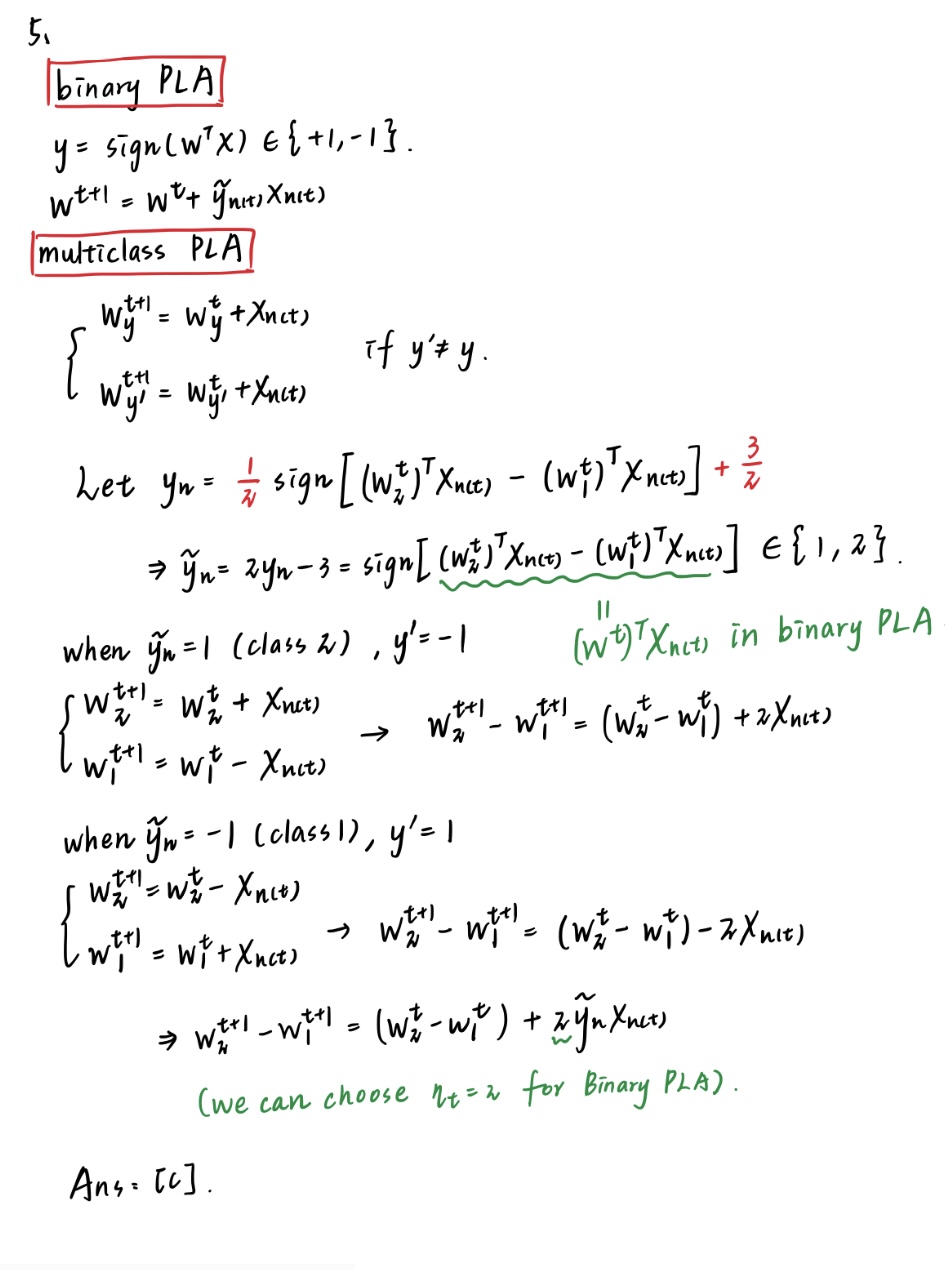 5.
binary PLA
y = sign(wᵀx) ∈ {+1, -1}.
w^{t+1} = w^t + ỹ_{n(t)} x_{n(t)}
multiclass PLA
{ w_y^{t+1} = w_y^t + x_{n(t)}
if y' ≠ y.
w_{y'}^{t+1} = w_{y'}^t + x_{n(t)}
Let y_n = 1/2 sign[(w_2^t)^T x_{n(t)} - (w_1^t)^T x_{n(t)}] + 3/2
⇒ ỹ_n = 2y_n - 3 = sign[(w_2^t)^T x_{n(t)} - (w_1^t)^T x_{n(t)}] ∈ {1, 2}.
|| (w^t)^T x_{n(t)} in binary PLA
when ỹ_n = 1 (class 2), y' = -1
{ w_2^{t+1} = w_2^t + x_{n(t)}
w_1^{t+1} = w_1^t - x_{n(t)}
→ w_2^{t+1} - w_1^{t+1} = (w_2^t - w_1^t) + 2x_{n(t)}
when ỹ_n = -1 (class 1), y' = 1
{ w_2^{t+1} = w_2^t - x_{n(t)}
w_1^{t+1} = w_1^t + x_{n(t)}
→ w_2^{t+1} - w_1^{t+1} = (w_2^t - w_1^t) - 2x_{n(t)}
⇒ w_2^{t+1} - w_1^{t+1} = (w_2^t - w_1^t) + 2ỹ_n x_{n(t)}
(we can choose η_t = 2 for Binary PLA).
Ans = [c].